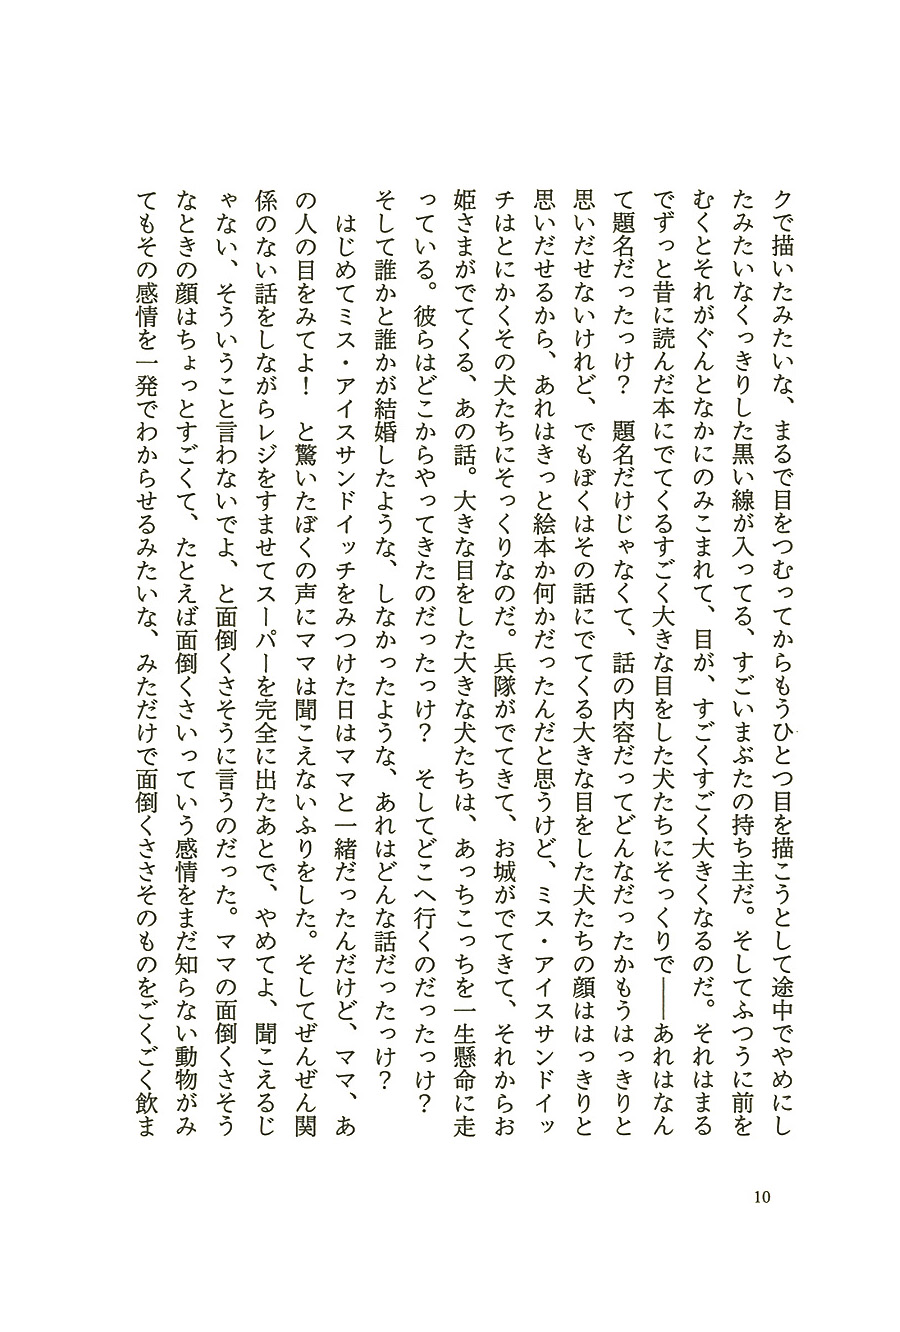 クで描いたみたいな、まるで目をつむってからもうひとつ目を描こうとして途中でやめにし
たみたいなくっきりした黒い線が入ってる、すごいまぶたの持ち主だ。そしてふつうに前を
むくとそれがぐんとなかにのみこまれて、目が、すごくすごく大きくなるのだ。それはまる
でずっと昔に読んだ本にでてくるすごく大きな目をした犬たちにそっくりで――あれはなん
て題名だったっけ？　題名だけじゃなくて、話の内容だってどんなだったかもうはっきりと
思いだせないけれど、でもぼくはその話にでてくる大きな目をした犬たちの顔ははっきりと
思いだせるから、あれはきっと絵本か何かだったんだと思うけど、ミス・アイスサンドイッ
チはとにかくその犬たちにそっくりなのだ。兵隊がでてきて、お城がでてきて、それからお
姫さまがでてくる、あの話。大きな目をした大きな犬たちは、あっちこっちを一生懸命に走
っている。彼らはどこからやってきたのだったっけ？　そしてどこへ行くのだったっけ？
そして誰かと誰かが結婚したような、しなかったような、あれはどんな話だったっけ？
　はじめてミス・アイスサンドイッチをみつけた日はママと一緒だったんだけど、ママ、あ
の人の目をみてよ！　と驚いたぼくの声にママは聞こえないふりをした。そしてぜんぜん関
係のない話をしながらレジをすませてスーパーを完全に出たあとで、やめてよ、聞こえるじ
ゃない、そういうこと言わないでよ、と面倒くさそうに言うのだった。ママの面倒くさそう
なときの顔はちょっとすごくて、たとえば面倒くさいっていう感情をまだ知らない動物がみ
てもその感情を一発でわからせるみたいな、みただけで面倒くささそのものをごくごく飲ま
10